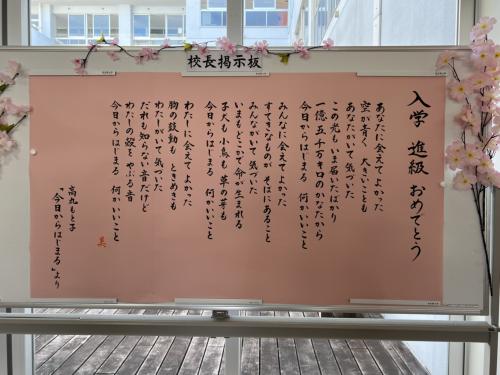 校長掲示板
入学 進級 おめでとう
あなたに会えてよかった
空が青く 大きいことも
あなたがいて 気づいた
この光も いま届いたばかり
一億五千万キロのかなたから
今日からはじまる 何かいいこと
みんなに会えてよかった
すてきなものが そばにあること
みんながいて 気づいた
いまもどこかで 命が生まれる
子犬も 小鳥も 草の芽も
今日からはじまる 何かいいこと
わたしに会えてよかった
胸の鼓動も ときめきも
わたしがいて 気づいた
だれも知らない音だけど
わたしの殻をやぶる音
今日からはじまる 何かいいこと
高丸もと子
「今日からはじまる」より